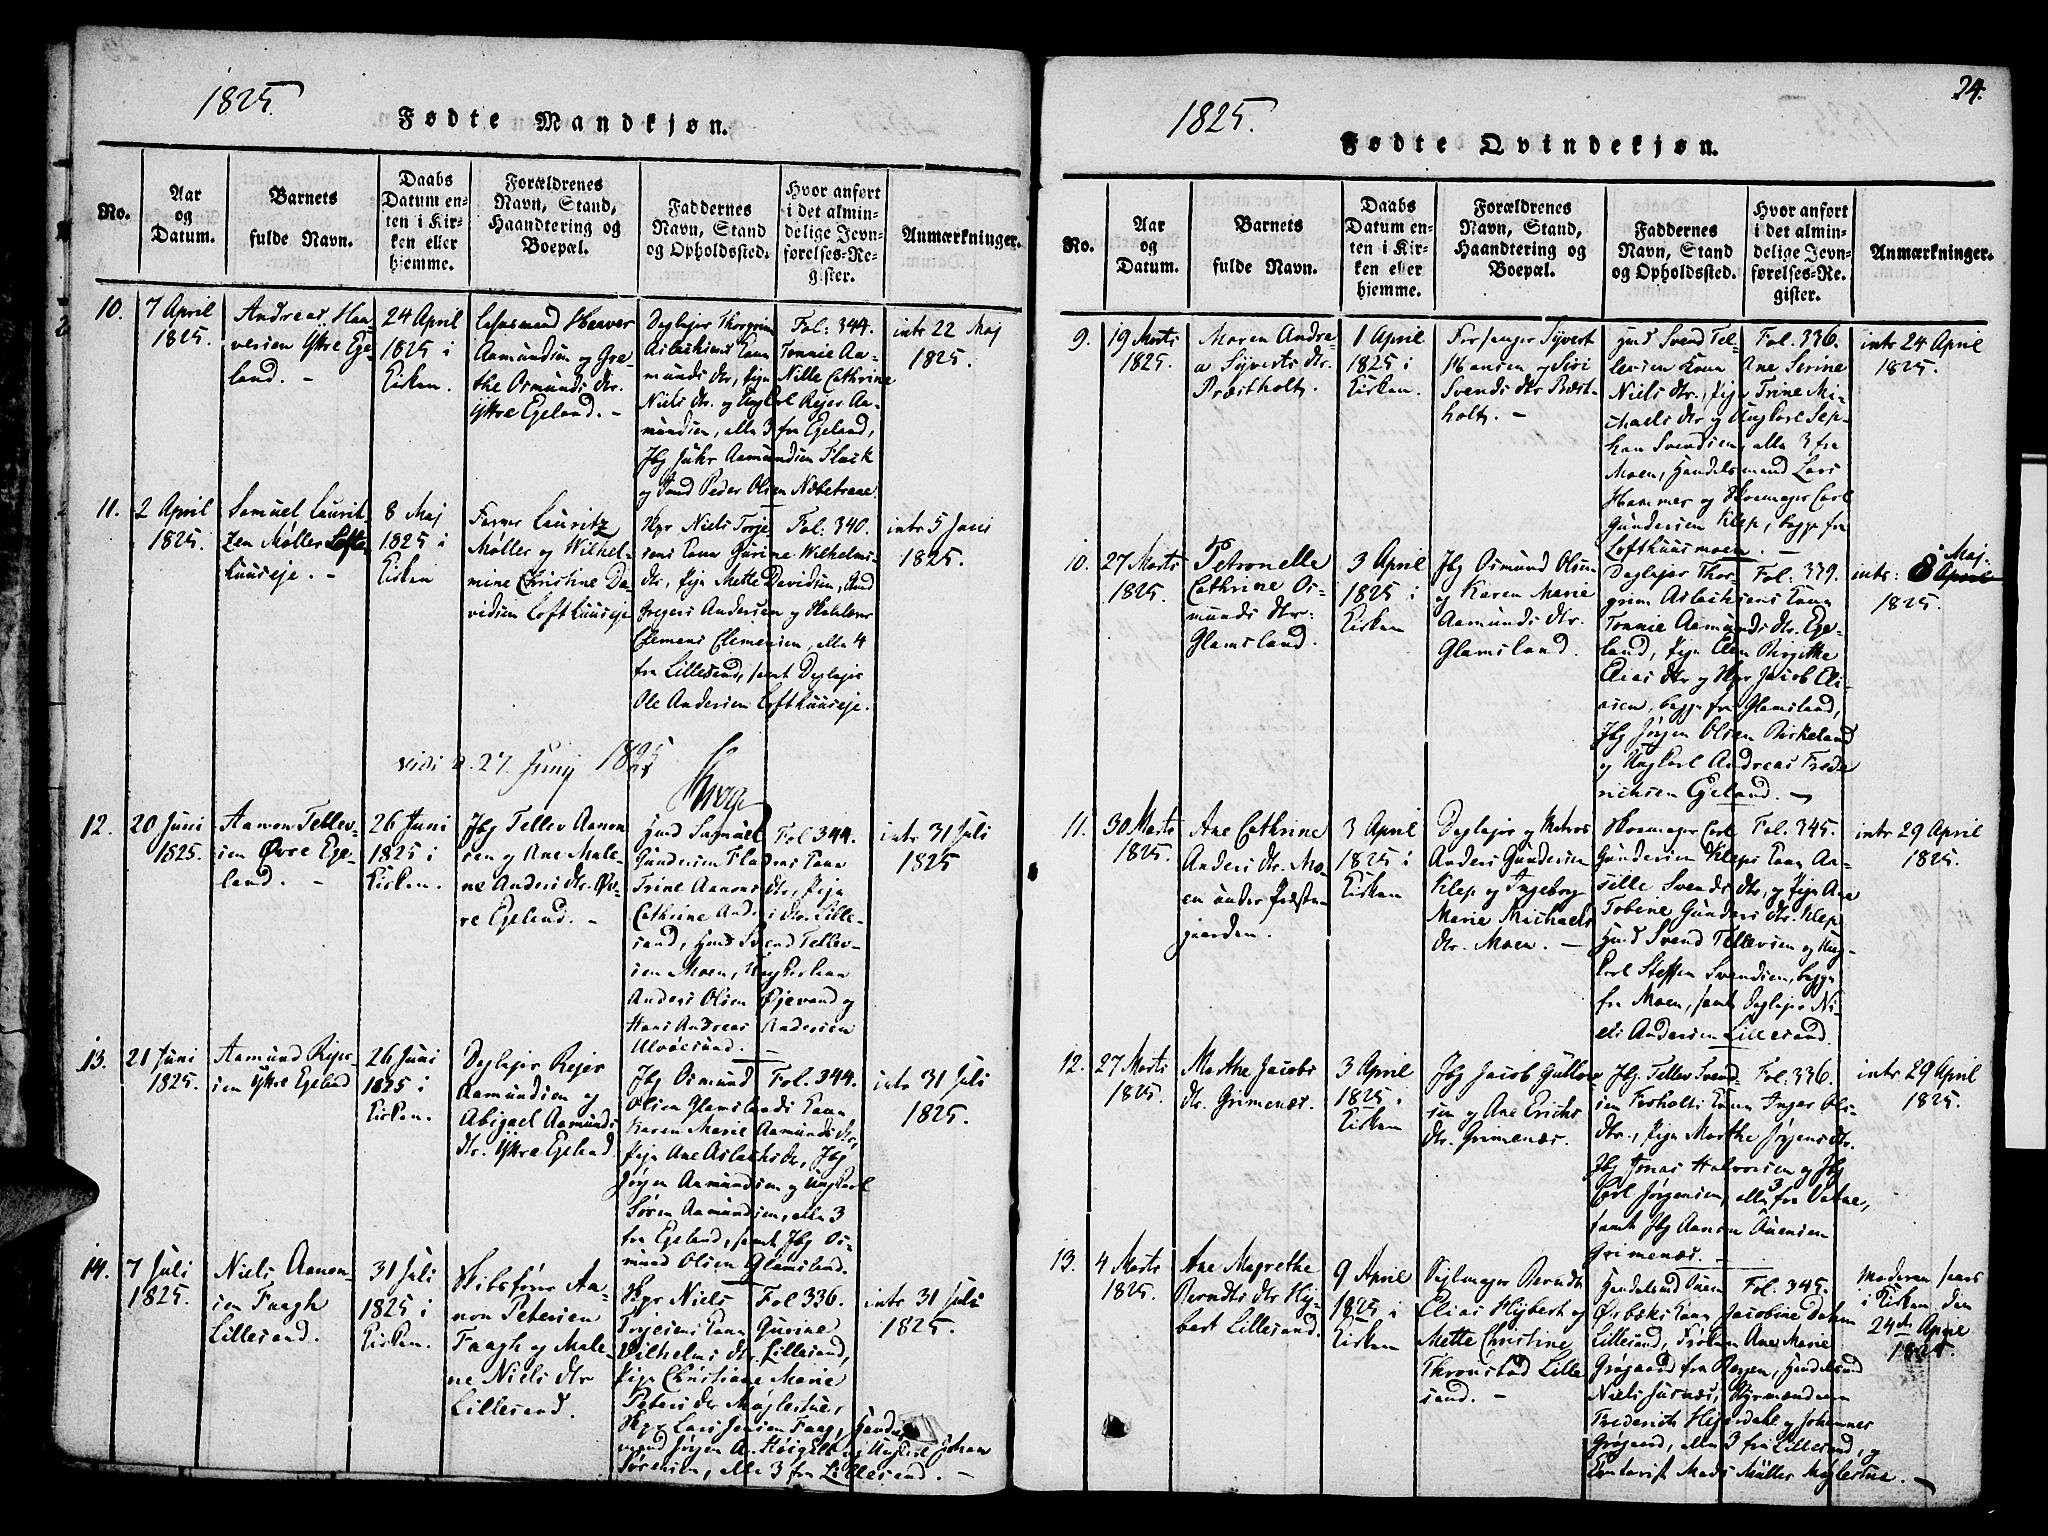 1825.
Fødte Mandkjøn.
No.
Aar
og
Datum.
Barnets
fulde Navn.
Daabs
Datum en-
ten i Kir-
ken eller
hjemme.
Forældrenes
Navn, Stand,
Haandtering og
Boepæl.
Faddernes
Navn, Stand
og Opholdssted.
Hvor anført
i det almin-
delige Jevn-
førelses-Re-
gister.
Anmærkninger.
10.
7 April
1825.
Andreas Haa-
versen Ytre Ege-
land. -
24 April
1825 i
Kirken.
Haaver
Aamundsen og Gre-
the Osmunds Dtr.
Ytre Egeland. -
Deglejer Thorgrim
Aslachsens Kone Tonnie Aa-
munds dtr, Pige Nille Cathrine
Niels dtr. og Ungkarl Rejer Aa-
mundsen, alle 3 fra Egeland,
Jbg Juhr Aamundsen Flack
og Peder Olsen
Fol: 344.
intr 22 Maj
1825.
11.
2 April
1825.
Samuel Laurit-
zen Møller Lofte-
huuseje. -
8 Maj
1825 i
Kirken
Farver Lauritz
Møller og Wilhel-
mine Christine Da-
vidsen Lofthuuseje
Skpr Niels Torje-
sens Kone Gurine Wilhelms
dtr, Pige Mette Davidsen,
Gregers Andersen og
Clemens Clemensen, alle 4
fra Lillesand, samt Deglejer
Ole Andersen Lofthuuseje.
Fol: 340.
intr 5 Juni
1825.
vidi d. 27. Junij 1825
12.
20 Juni
1825.
Aanon Tellev-
sen Øvre Ege-
land. -
26 Juni
1825 i
Kirken.
Jbg Tellev Aanon
sen og Ane Male-
ne Anders dtr. Øv-
re Egeland. -
Huusmd Samuel
Gundersen Kone
Trine Aanons dtr, Pige
Cathrine Anders dtr. Lille-
sand, Huusmd Svend Tellev-
sen Moen, Ungkarlene
Anders Olsen og
Hans Andreas Andersen
Ulvøesund.
Fol 344.
intr 31 Juli
1825
13.
21 Juni
1825.
Aamund Rejer-
sen Ytre Egeland
26 Juni
1825 i
Kirken.
Deglejer Rejer
Aamundsen og
Abigael Aamunds
dtr. Ytre Egeland.
Jbg Osmund
Olsen Glamslands Kone
Karen Marie Aamunds dtr,
Pige Ane Aslachs dtr, Jbg
Jørgen Aamundsen og Ungkarl
Søren Aamundsen, alle 3
fra Egeland, samt Jbg Os-
mund Olsen Glamsland.
Fol. 344.
intr 31 Juli
1825.
14.
7 Juli
1825.
Niels Aanon-
sen Faagh
Lillesand.
31 Juli
1825 i
Kirken.
Skibsfører Aa-
non Petersen
Faagh og Male-
ne Niels dtr
Lillesand.
Skpr Niels
Torjesens Kone Gurine
Wilhelms dtr. Lillesand,
Pige Christiane Marie
Peters dtr Møglestue,
Skpr Lars Jensen Faag, Handels-
mand Jørgen A. Høigelt og Ungkarl Johan
Sørensen, alle 3 fra Lillesand. -
Fol 336.
intr 31 Juli
1825.
24.
1825.
Fødte Qvindekjøn.
No.
Aar
og
Datum.
Barnets
fulde Navn.
Daabs
Datum en-
ten i Kir-
ken eller
hjemme.
Forældrenes
Navn, Stand,
Haandtering og
Boepæl.
Faddernes
Navn, Stand,
og Opholdssted.
Hvor anført
i det almin-
delige Jevn-
førelses-Re-
gister.
Anmærkninger.
9.
19 Marts
1825.
Maren Andre-
a Syverts dtr.
Præstholt.
1 April
1825 i
Kirken.
Forsanger Syvert
Hansen og Siri
Svends dtr Præst-
holt. -
Huusmd Svend Tel-
levsen Kone Ane Serine
Niels dtr, Pige Trine Mi-
chaels dtr og Ungkarl Sep-
han Svendsen, alle 3 fra
Moen, Handelsmand Lars
Hammer og Skomager Carl
Gundersen Klep, begge fra
Lofthuusmoen. -
Fol. 336.
intr 24 April
1825.
10.
27 Marts
1825.
Petronelle
Cathrine Os-
munds dtr.
Glamsland.
3 April
1825 i
Kirken
Jbg Osmund Olsen
og Karen Marie
Aamunds dtr.
Glamsland.
Deglejer Thor-
grim Aslachsens Kone
Tonnie Aamunds dtr. Ege-
land, Pige Elen Birgitte
Elias dtr og Skpr Jacob Eli-
asen, begge fra Glamsland,
Jbg Jørgen Olsen Birkeland
og Ungkarl Andreas Frede-
richsen Egeland. -
Fol. 339.
intr: 8 Maj.
April
1825.
11.
30 Marts
1825.
Ane Cathrine
Anders dtr. Mo-
en under Præste-
gaarden.
3 April
1825 i
Kirken
Deglejer og Matros
Anders Gundersen
Klep og Ingeborg
Marie Michaels
dtr. Moen. -
Skomager Carl
Gundersen Kleps Kone Aa-
selle Svends dtr, og Pige Ane
Tobine Gunders dtr. Klep
Huusmd Svend Tellevsen og Ung-
karl Steffen Svendsen, begge
fra Moen, samt Deglejer Ni-
els Andersen Lillesand.
Fol. 345.
intr 29 April
1825.
12.
27 Marts
1825.
Marthe Jacobs
dtr. Grimenæs.
3 April
1825 i
Kirken
Jbg Jacob Gullov-
sen og Ane Erichs
dtr. Grimenæs.
Jbg. Tellev Svend-
sen Kone Inger Ols-
dtr., Pige Marthe Jørgens dtr.
Jbg Jonas Halvorsen og Jbg
Carl Jørgensen, alle 3 fra Vatne,
samt Jbg Aanon Auensen
Grimenæs. -
Fol. 336.
intr 29 April
1825.
13.
4 Marts
1825.
Ane Magrethe
Berndts dtr Hy-
bert Lillesand.
9 April
1825 i
Kirken
Sejlmager Berndt
Elias Hybert og
Mette Christine
Thronstad Lille
sand. -
Handelsmd
Ørbeks Kone Jacobine Dahm
Lillesand, Frøken Ane Marie
Grøgaard fra Bergen, Handelsmd
Niels Jusnæs, Styrmændene
Frederich Hegerdahl og Johannes
Grøgaard, alle 3 fra Lillesand, og
Contorist Mads Müller Møglestue. -
Fol. 345.
Moderen
i Kirken den
24de April
1825.